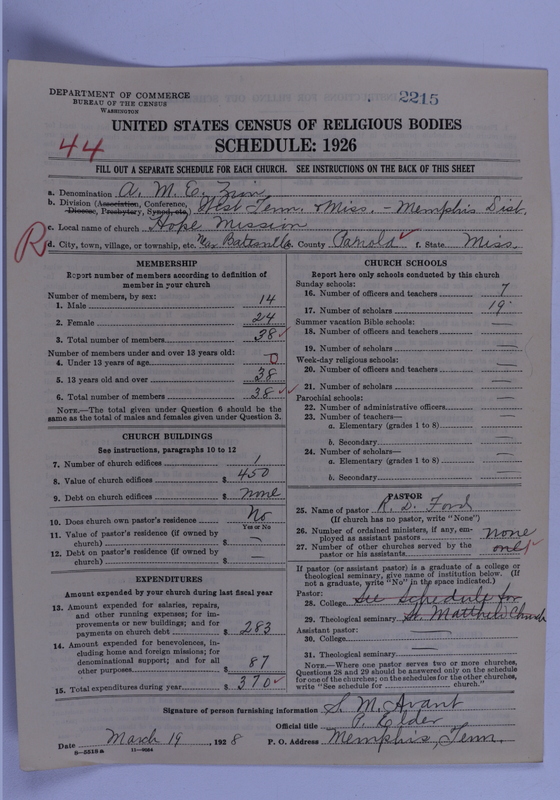 DEPARTMENT OF COMMERCE
BUREAU OF THE CENSUS
WASHINGTON
2215
UNITED STATES CENSUS OF RELIGIOUS BODIES
SCHEDULE: 1926
44
FILL OUT A SEPARATE SCHEDULE FOR EACH CHURCH. SEE INSTRUCTIONS ON THE BACK OF THIS SHEET
a. Denomination A. M. E. Zion
b. Division (Association, Conference, Diocese, Presbytery, Synod, etc.) West Tenn. & Miss. - Memphis Dist.
c. Local name of church Hope Mission
R
d. City, town, village, or township, etc. Near Batesville e. County Panola ✓ f. State Miss.
MEMBERSHIP
Report number of members according to definition of member in your church
Number of members, by sex:
1. Male 14
2. Female 24
3. Total number of members 38 ✓
Number of members under and over 13 years old:
4. Under 13 years of age 0
5. 13 years old and over 38
6. Total number of members 38 ✓✓
NOTE.—The total given under Question 6 should be the same as the total of males and females given under Question 3.
CHURCH BUILDINGS
See instructions, paragraphs 10 to 12
7. Number of church edifices 1
8. Value of church edifices $ 450
9. Debt on church edifices $ None
10. Does church own pastor's residence No
Yes or No
11. Value of pastor's residence (if owned by church) $ —
12. Debt on pastor's residence (if owned by church) $ —
EXPENDITURES
Amount expended by your church during last fiscal year
13. Amount expended for salaries, repairs, and other running expenses; for improvements or new buildings; and for payments on church debt $ 283
14. Amount expended for benevolences, including home and foreign missions; for denominational support; and for all other purposes $ 87
15. Total expenditures during year $ 370 ✓
CHURCH SCHOOLS
Report here only schools conducted by this church
Sunday schools:
16. Number of officers and teachers 7
17. Number of scholars 19
Summer vacation Bible schools:
18. Number of officers and teachers —
19. Number of scholars —
Week-day religious schools:
20. Number of officers and teachers —
21. Number of scholars —
Parochial schools:
22. Number of administrative officers —
23. Number of teachers—
a. Elementary (grades 1 to 8) —
b. Secondary —
24. Number of scholars—
a. Elementary (grades 1 to 8) —
b. Secondary —
PASTOR
25. Name of pastor R. D. Ford
(If church has no pastor, write "None")
26. Number of ordained ministers, if any, employed as assistant pastors none
27. Number of other churches served by the pastor or his assistants one ✓
If pastor (or assistant pastor) is a graduate of a college or theological seminary, give name of institution below. (If not a graduate, write "No" in the space indicated.)
Pastor:
28. College See Schedule for
29. Theological seminary St. Matthews Church
Assistant pastor:
30. College —
31. Theological seminary —
NOTE.—Where one pastor serves two or more churches, Questions 28 and 29 should be answered only on the schedule for one of the churches; on the schedules for the other churches, write "See schedule for ........ church."
Signature of person furnishing information S. M. Avant
Official title P. Elder
Date March 19, 1928 P. O. Address Memphis, Tenn.
8—5518a 11—9084